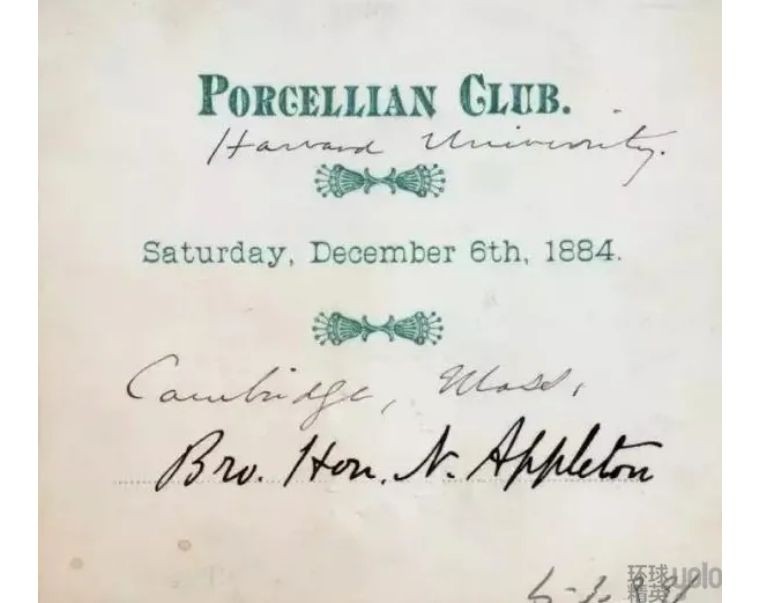 PORCELLIAN CLUB.
Harvard University.
Saturday, December 6th, 1884.
Cambridge, Mass.
Bro. Hon. N. Appleton
环球uolo
精英